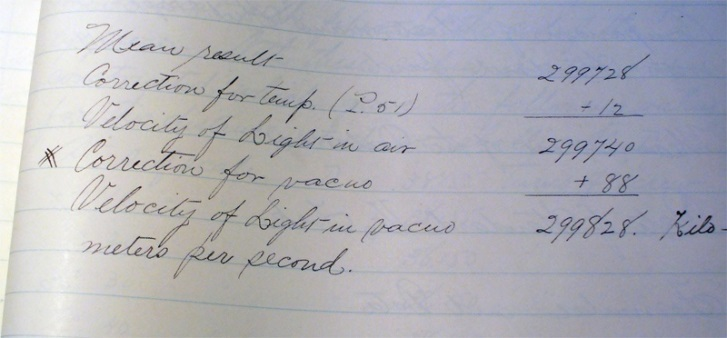 Mean result 299728
Correction for temp. (P. 51) +12
Velocity of Light in air 299740
* Correction for vacuo +88
Velocity of Light in vacuo 299828. Kilo-
meters per second.